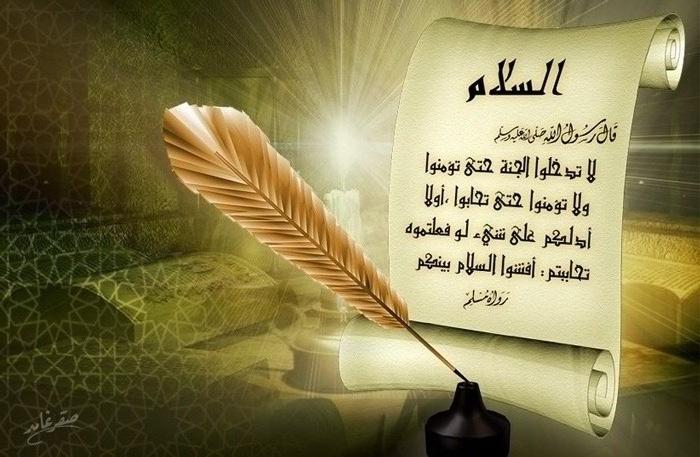 السلام
قال رسول الله صلى الله عليه وسلم
لا تدخلوا الجنة حتى تؤمنوا
ولا تؤمنوا حتى تحابوا ،أولا
أدلكم على شيء لو فعلتموه
تحاببتم: أفشوا السلام بينكم
رواه مسلم
صقر غامد